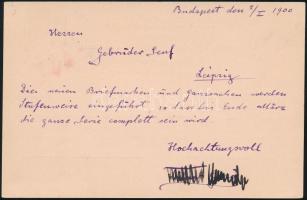 Budapest den 2/I 1900
Herren
Gebrüder Senf
Leipzig
Die neuen Briefmarken und Ganzsachen werden
stufenweise eingeführt so dass bis Ende März
die ganze Serie complett sein wird.
Hochachtungsvoll